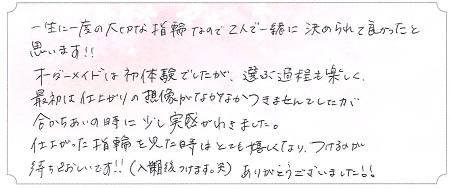 一生に一度の大切な指輪なので2人で一緒に決められて良かったと
思います!!
オーダーメイドは初体験でしたが、選ぶ過程も楽しく、
最初は仕上がりの想像がなかなかつきませんでしたが
合からあいの時に少し実感がわきました。
仕上がった指輪を見た時はとても嬉しくなり、つけるのが
待ちどおしいです!!(入籍後つけます。笑) ありがとうございました!!